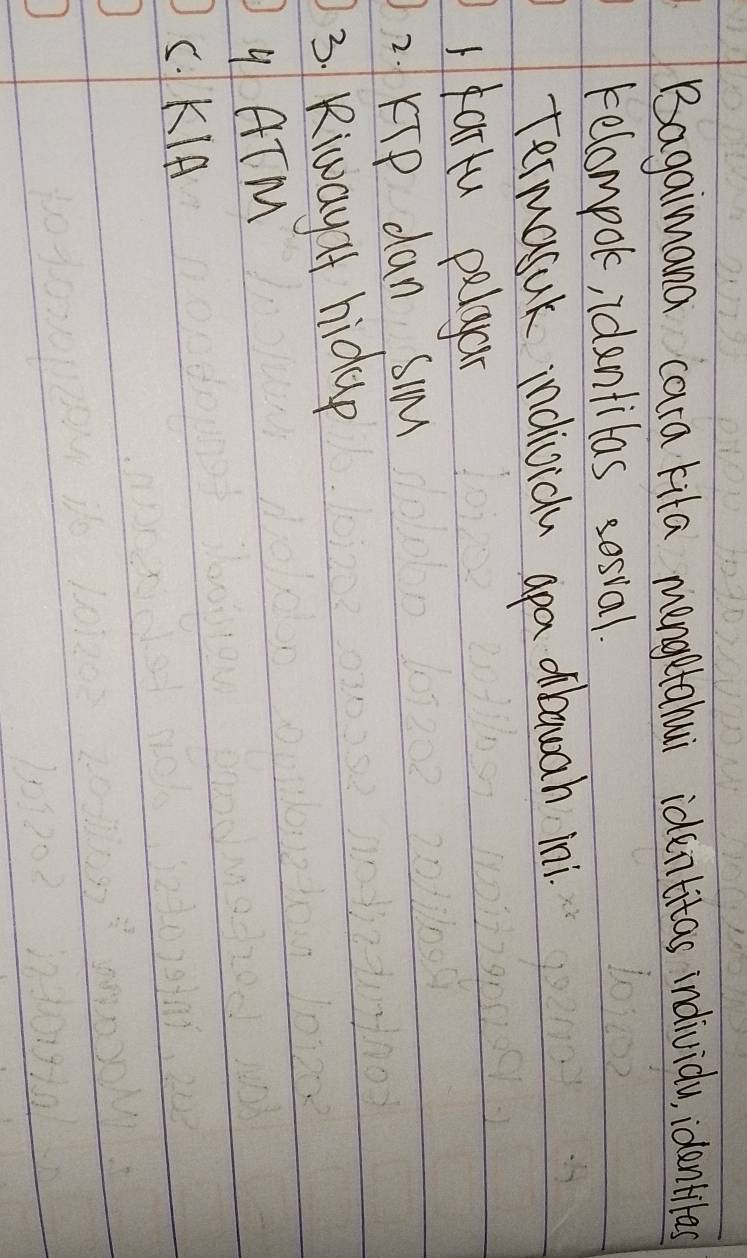 Bagaimana cara kita mengetahui identitas individu, identitas
kelompok, identitas sosial.
Termasuk individu apa dibawah ini.
1 kartu pelajar
2. KTP dan SIM
3. Riwayat hidup
4 ATM
5. KIA